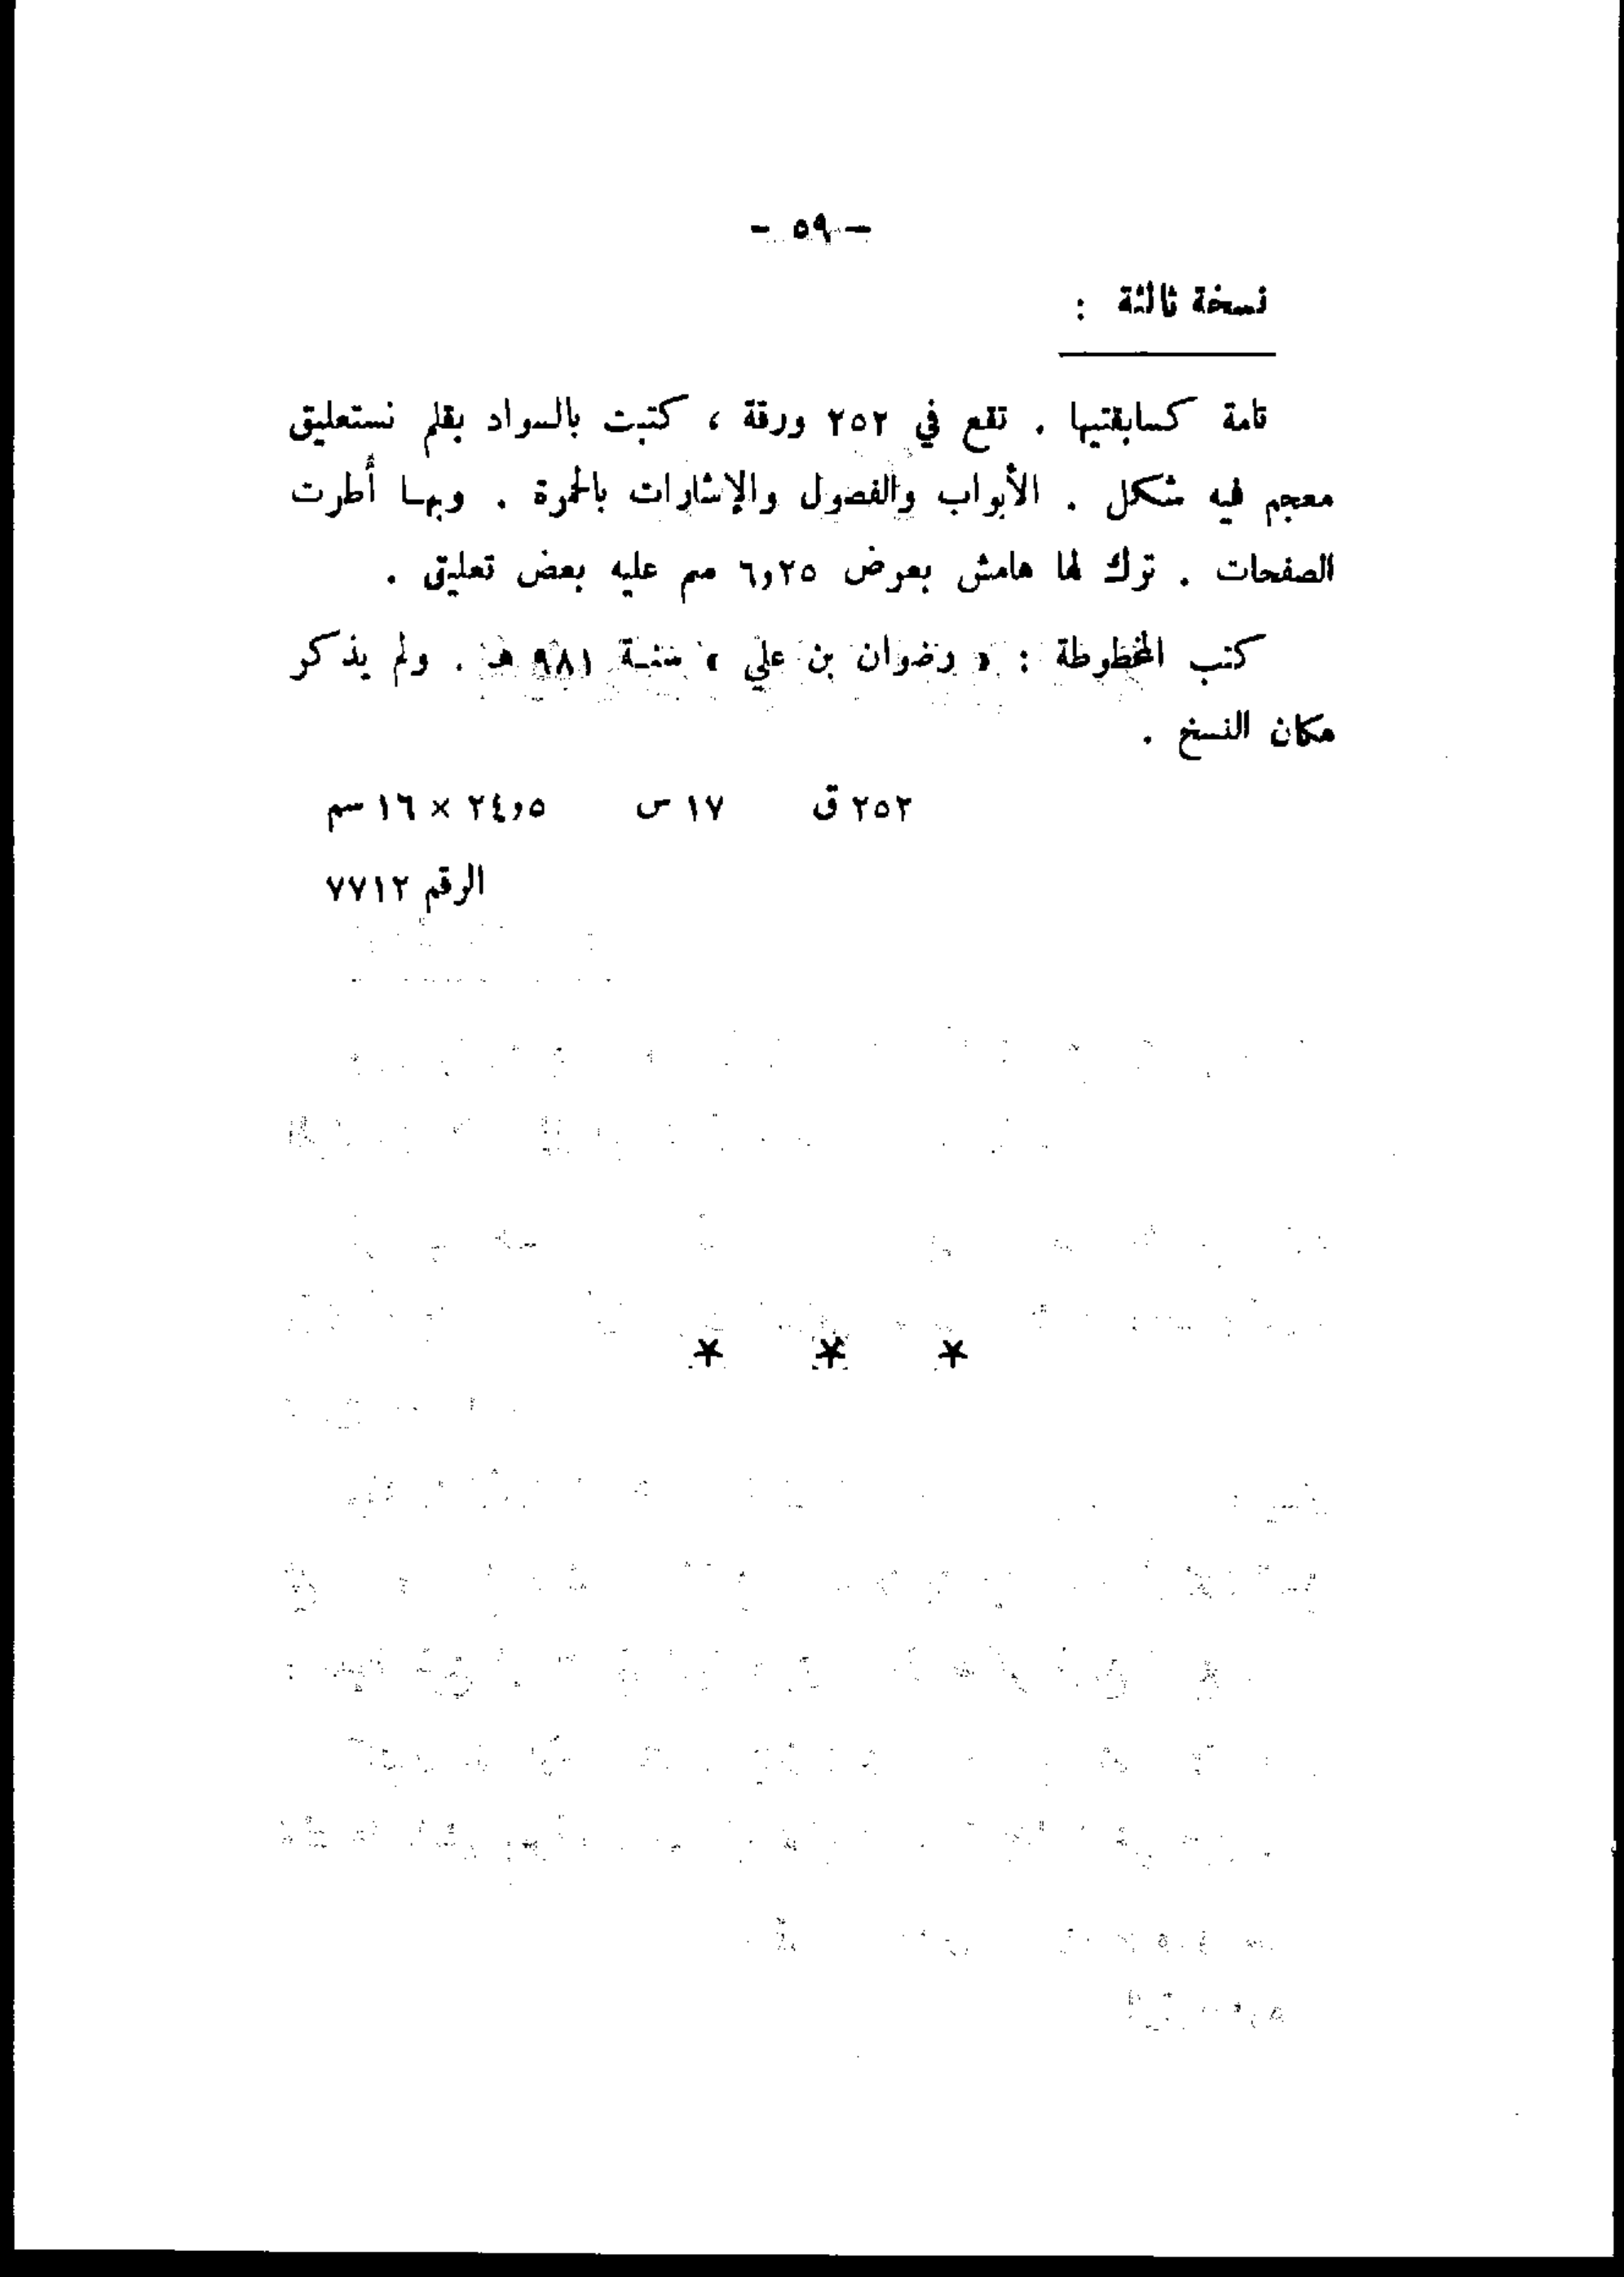 — ٥٩ —
نسخة ثالثة :
تامة كسابقتيها . تقع في ٢٥٢ ورقة ، كتبت بالسواد بقلم نستعليق
معجم فيه شكل . الأبواب والفصول والإشارات بالحمرة . وبها أُطرت
الصفحات . ترك لها هامش بعرض ٦,٢٥ سم عليه بعض تعليق .
كتب المخطوطة : « رضوان بن علي » سنة ٩٨١ هـ . ولم يذكر
مكان النسخ .
٢٥٢ ق ١٧ س ٢٤,٥ × ١٦ سم
الرقم ٧٧١٢
* * *